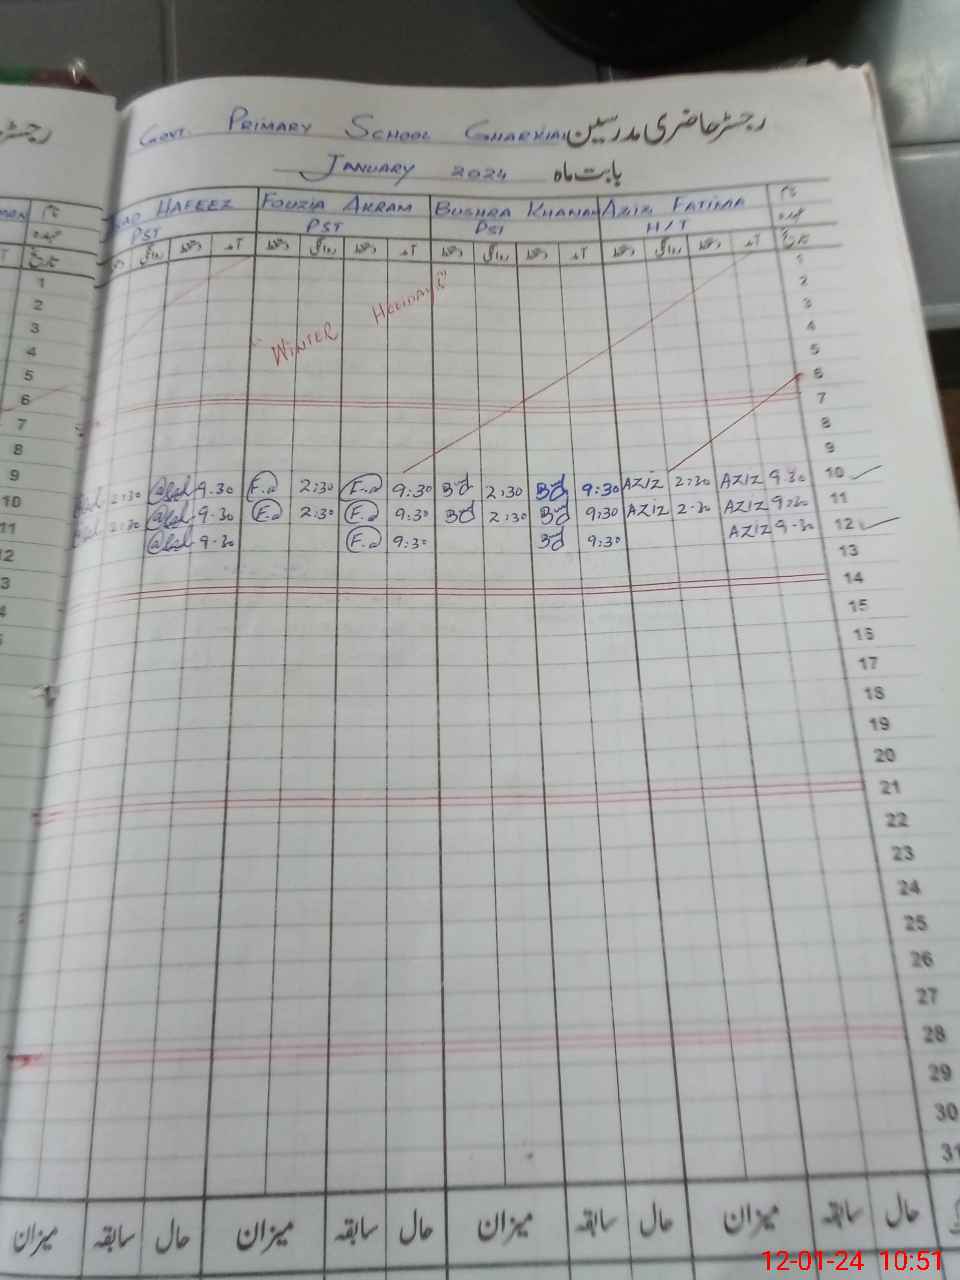 رجسٹر حاضری مدرسین
GOVT. PRIMARY SCHOOL
بابت ماہ JANUARY 2024
نام AZIZ FATIMA BUSHRA KHANAM FOUZIA AKRAM HAFEEZ
عہدہ H/T PST PST PST
تاریخ آمد دستخط روانگی دستخط آمد دستخط روانگی دستخط آمد دستخط روانگی دستخط آمد دستخط روانگی
1
2
3
4
5
6
7
8
9
"WINTER HOLIDAYS"
2:30 9.30 F.a 2:30 F.a 9:30 2:30 9:30 AZIZ 2:30 AZIZ 9:30 10
2:30 9.30 F.a 2:30 F.a 9:30 2:30 9:30 AZIZ 2-30 AZIZ 9:30 11
9.30 F.a 9:30 9:30 AZIZ 9-30 12
13
14
15
16
17
18
19
20
21
22
23
24
25
26
27
28
29
30
31
حال سابقہ میزان حال سابقہ میزان حال سابقہ میزان حال سابقہ میزان
12-01-24 10:51